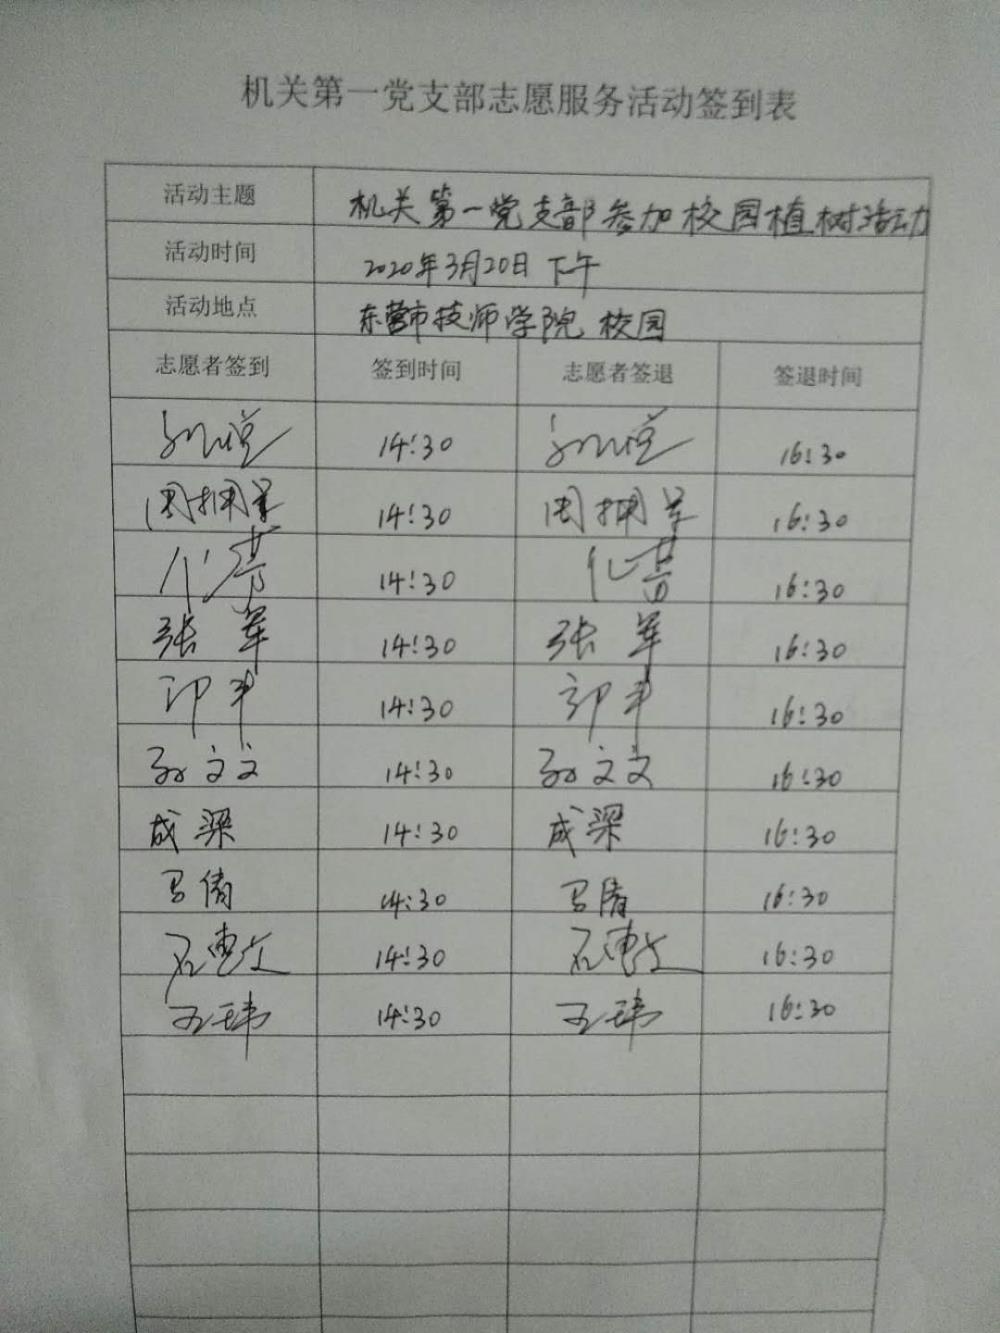 机关第一党支部志愿服务活动签到表
活动主题 机关第一党支部参加校园植树活动
活动时间 2020年3月20日下午
活动地点 东营市技师学院 校园
志愿者签到 签到时间 志愿者签退 签退时间
14:30 16:30
14:30 16:30
14:30 16:30
张军 14:30 张军 16:30
14:30 16:30
孙文文 14:30 孙文文 16:30
成梁 14:30 成梁 16:30
马倩 14:30 马倩 16:30
14:30 16:30
王玮 14:30 王玮 16:30